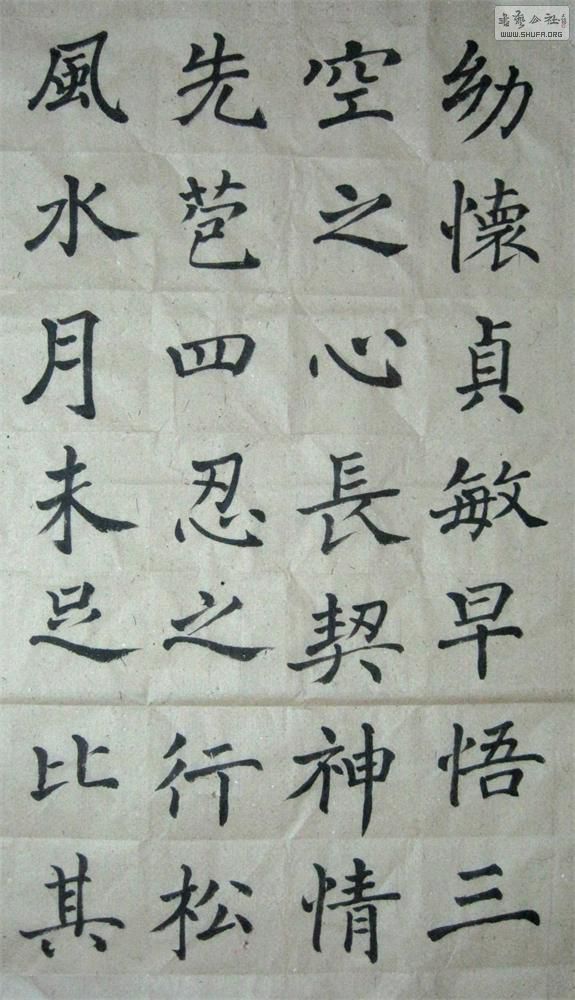 幼懷貞敏早悟三
空之心長契神情
先苞四忍之行松
風水月未足比其
WWW.SHUFA.ORG